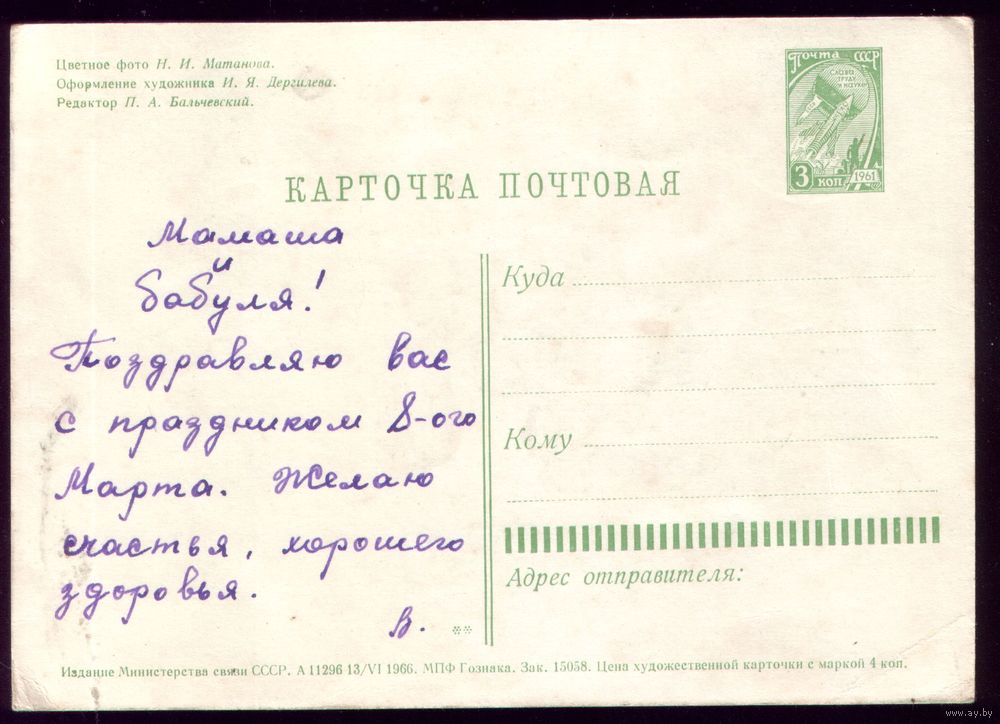 Цветное фото Н. И. Матанова.
Оформление художника И. Я. Дергилева.
Редактор П. А. Бальчевский.
Почта СССР
СЛАВА
ТРУДУ
И НАУКЕ!
3 КОП
1961
КАРТОЧКА ПОЧТОВАЯ
Мамаша
и
бабуля!
Поздравляю вас
с праздником 8-ого
Марта. Желаю
счастья, хорошего
здоровья.
В.
Куда
Кому
Адрес отправителя:
Издание Министерства связи СССР. А 11296 13/VI 1966. МПФ Гознака. Зак. 15058. Цена художественной карточки с маркой 4 коп.
www.ay.by